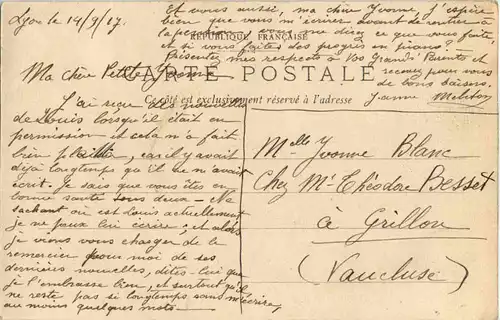 Lyon le 14/9/17.
Ma chère Petite Yvonne
J'ai reçu des nouvelles
de Louis lorsqu'il était en
permission et cela m'a fait
bien plaisir, car il y avait
déjà longtemps qu'il ne m'avait
écrit. Je sais que vous êtes en
bonne santé tous deux - Ne
sachant où est Louis actuellement
je ne peux lui écrire; et alors
je viens vous charger de le
remercier pour moi de ses
dernières nouvelles, dites-lui que
je l'embrasse bien, et surtout qu'il
ne reste pas si longtemps sans m'écrire,
au moins quelques mots -
Et vous aussi, ma chère Yvonne, j'espère
bien que vous m'écrirez avant de rentrer à
la vous me direz ce que vous faites
et si vous faites des progrès en piano?
Présentez mes respects à Vos Grands Parents et
recevez pour vous
de bons baisers.
Jeanne
RÉPUBLIQUE FRANÇAISE
CARTE POSTALE
Ce côté est exclusivement réservé à l'adresse
Melle Yvonne Blanc
Chez Mr Théodore Besset
à Grillon
(Vaucluse)